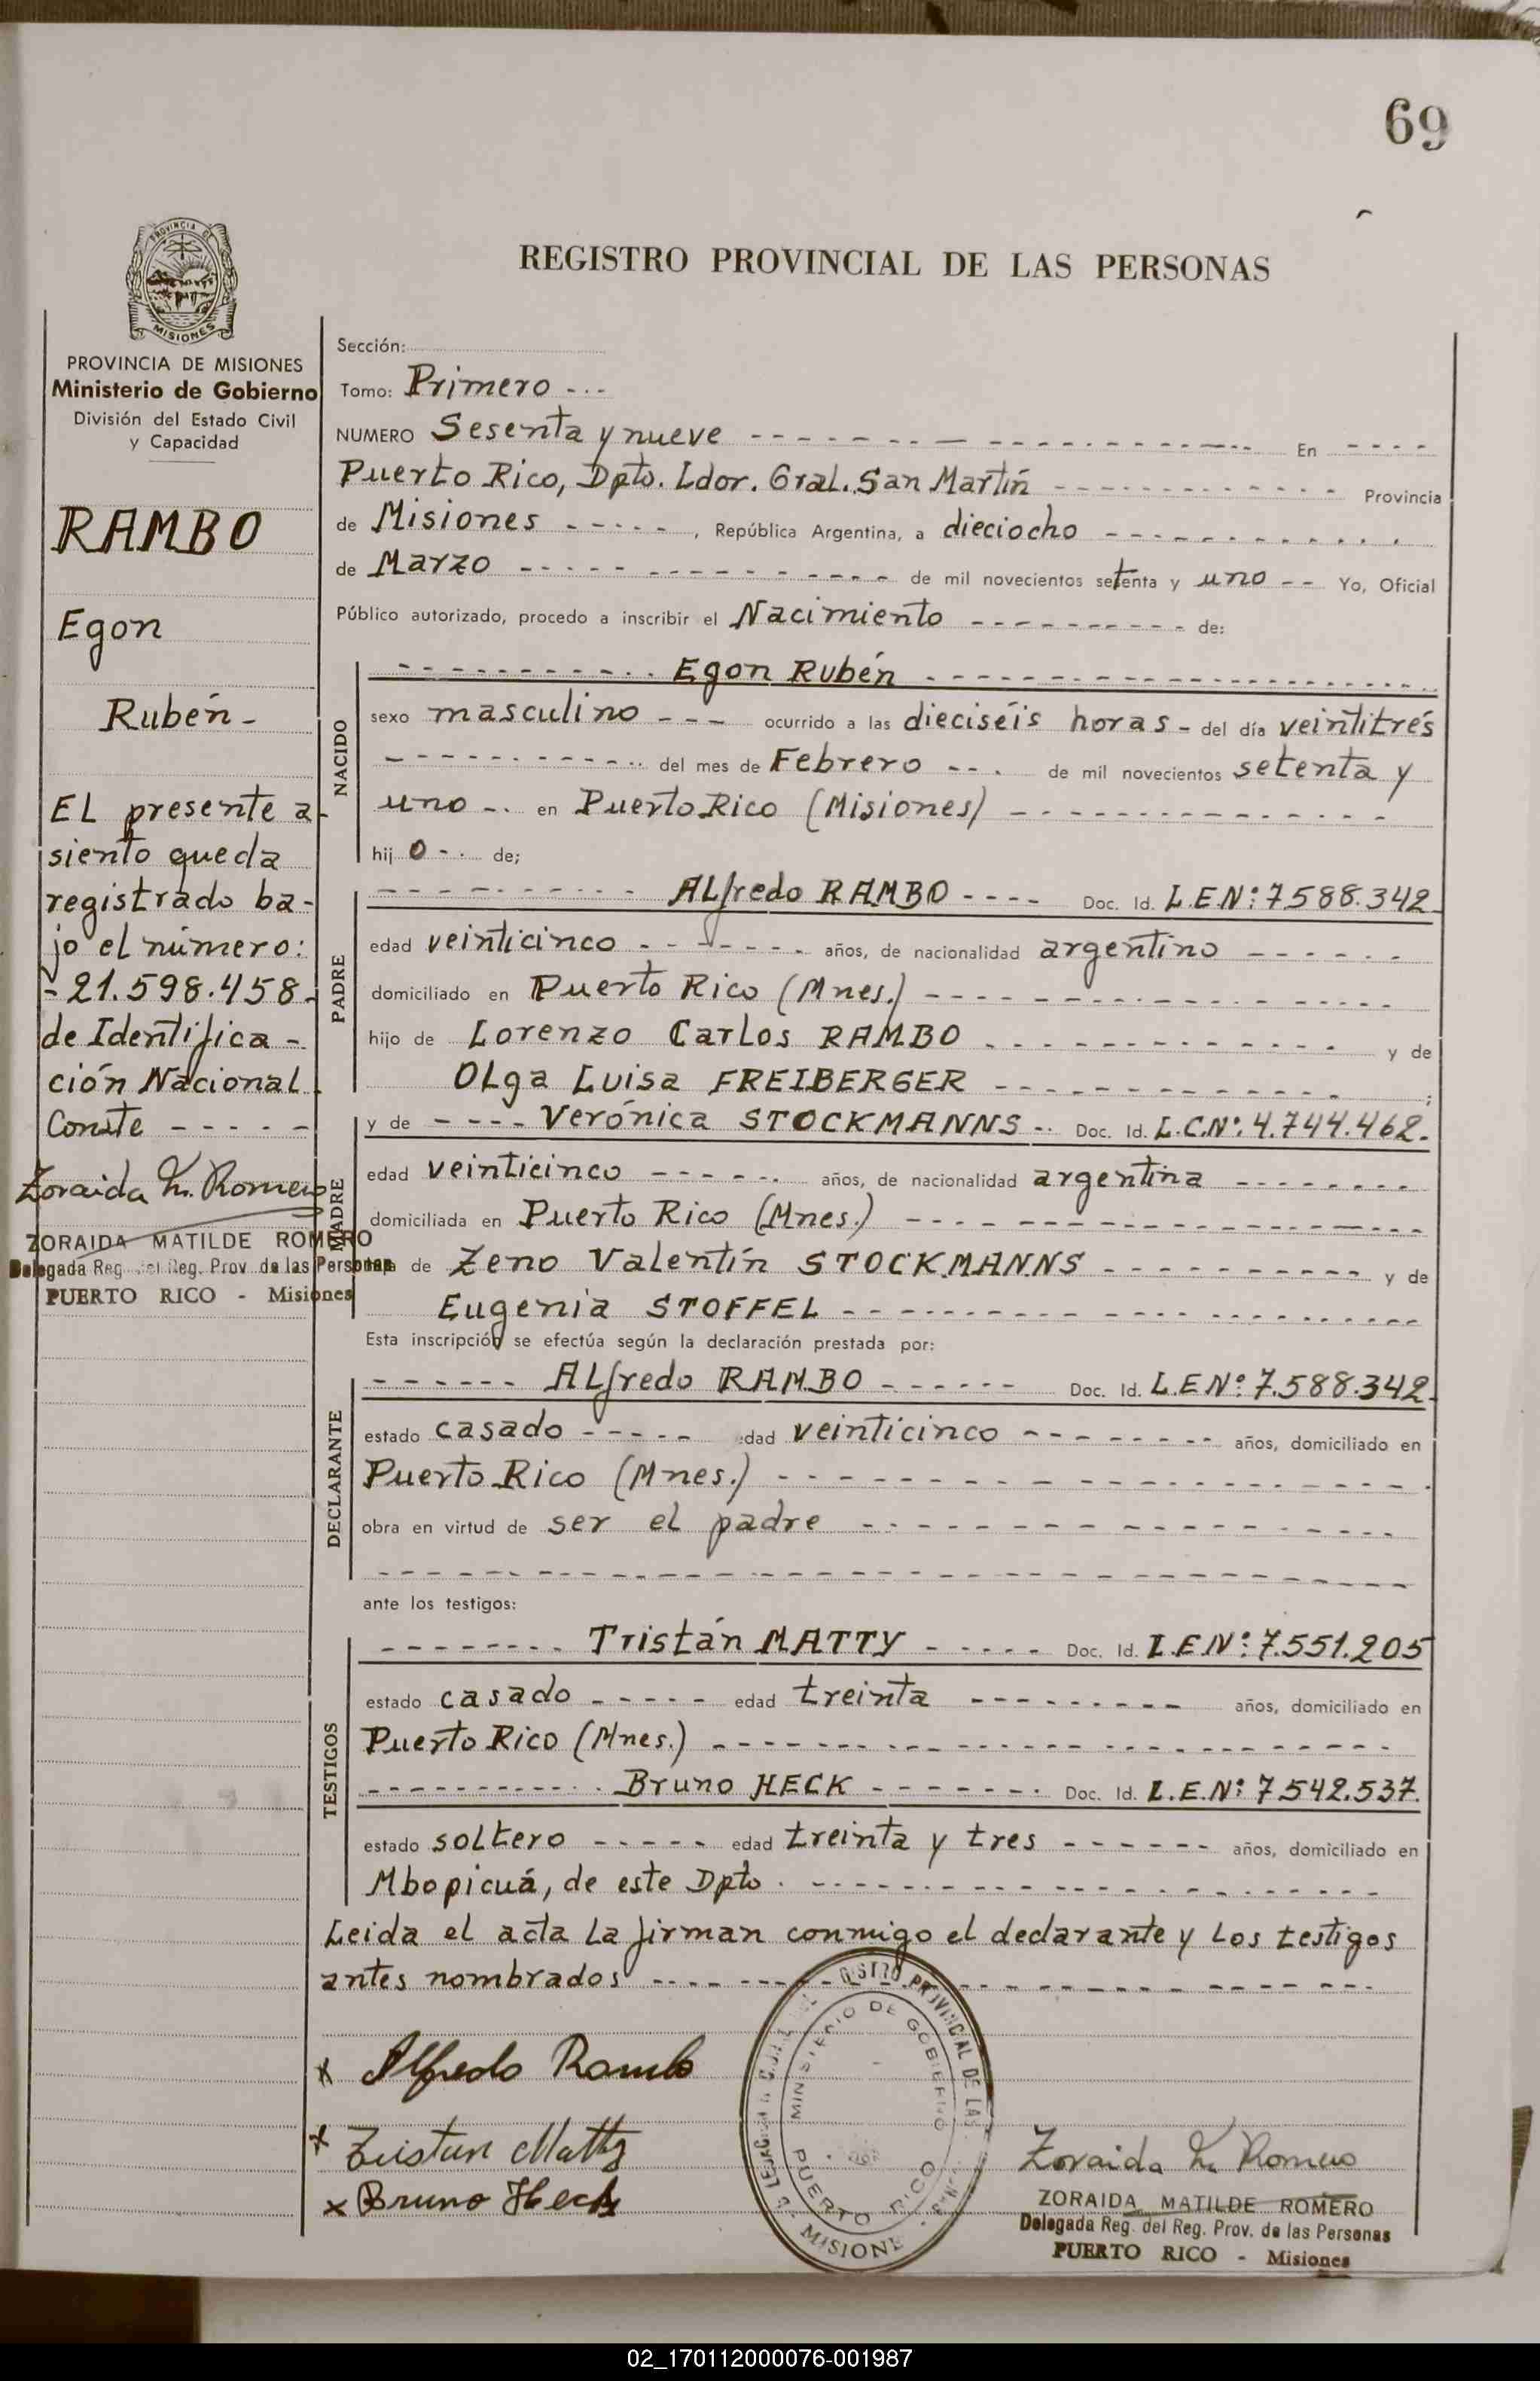 69
REGISTRO PROVINCIAL DE LAS PERSONAS
PROVINCIA DE
MISIONES
PROVINCIA DE MISIONES
Ministerio de Gobierno
División del Estado Civil
y Capacidad
RAMBO
Egon
Rubén-
EL presente a-
siento queda
registrado ba-
jo el número:
-21.598.458-
de Identifica-
ción Nacional.
Conste - - - - -
Zoraida M. Romero
ZORAIDA MATILDE ROMERO
Delegada Reg. del Reg. Prov. de las Personas
PUERTO RICO - Misiones
Sección:
Tomo: Primero - - -
NUMERO Sesenta y nueve - - - - En - - - -
Puerto Rico, Dpto. Ldor. Gral. San Martín - - - - Provincia
de Misiones - - - - -, República Argentina, a dieciocho - - - -
de Marzo - - - - de mil novecientos setenta y uno - - Yo, Oficial
Público autorizado, procedo a inscribir el Nacimiento - - - - de:
NACIDO
- - - - Egon Rubén - - - -
sexo masculino - - - ocurrido a las dieciséis horas - del día veintitrés
- - - - del mes de Febrero - - . de mil novecientos setenta y
uno - . en Puerto Rico (Misiones) - - - -
hij o - . de;
PADRE
- - - - ALfredo RAMBO - - - - Doc. Id. L.E.Nº: 7588.342
edad veinticinco - - - - años, de nacionalidad argentino - - - -
domiciliado en Puerto Rico (Mnes.) - - - -
hijo de Lorenzo Carlos RAMBO - - - - y de
OLga Luisa FREIBERGER - - - - ;
MADRE
y de - - - - Verónica STOCKMANNS - . Doc. Id. L.C.Nº: 4.744.462.
edad veinticinco - - - - años, de nacionalidad argentina - - - -
domiciliada en Puerto Rico (Mnes.) - - - -
de Zeno Valentín STOCKMANNS - - - - y de
Eugenia STOFFEL - - - -
Esta inscripción se efectúa según la declaración prestada por:
DECLARANTE
- - - - ALfredo RAMBO - - - - Doc. Id. L.E.Nº: 7.588.342.
estado casado - - - - - edad veinticinco - - - - años, domiciliado en
Puerto Rico (Mnes.) - - - -
obra en virtud de ser el padre - - - -
- - - -
ante los testigos:
TESTIGOS
- - - - Tristán MATTY - - - - Doc. Id. L.E.Nº: 7.551.205
estado casado - - - - - edad treinta - - - - años, domiciliado en
Puerto Rico (Mnes.) - - - -
- - - - Bruno HECK - - - - Doc. Id. L.E.Nº: 7.542.537.
estado soltero - - - - - edad treinta y tres - - - - años, domiciliado en
Mbopicuá, de este Dpto. - - - -
Leida el acta la firman conmigo el declarante y los testigos
antes nombrados - - - -
x Alfredo Rambo
x Tristan Matty
x Bruno Heck
PROVINCIAL DE LAS
MINISTERIO DE GOBIERNO
PUERTO RICO
Zoraida M. Romero
ZORAIDA MATILDE ROMERO
Delegada Reg. del Reg. Prov. de las Personas
PUERTO RICO - Misiones
02_170112000076-001987